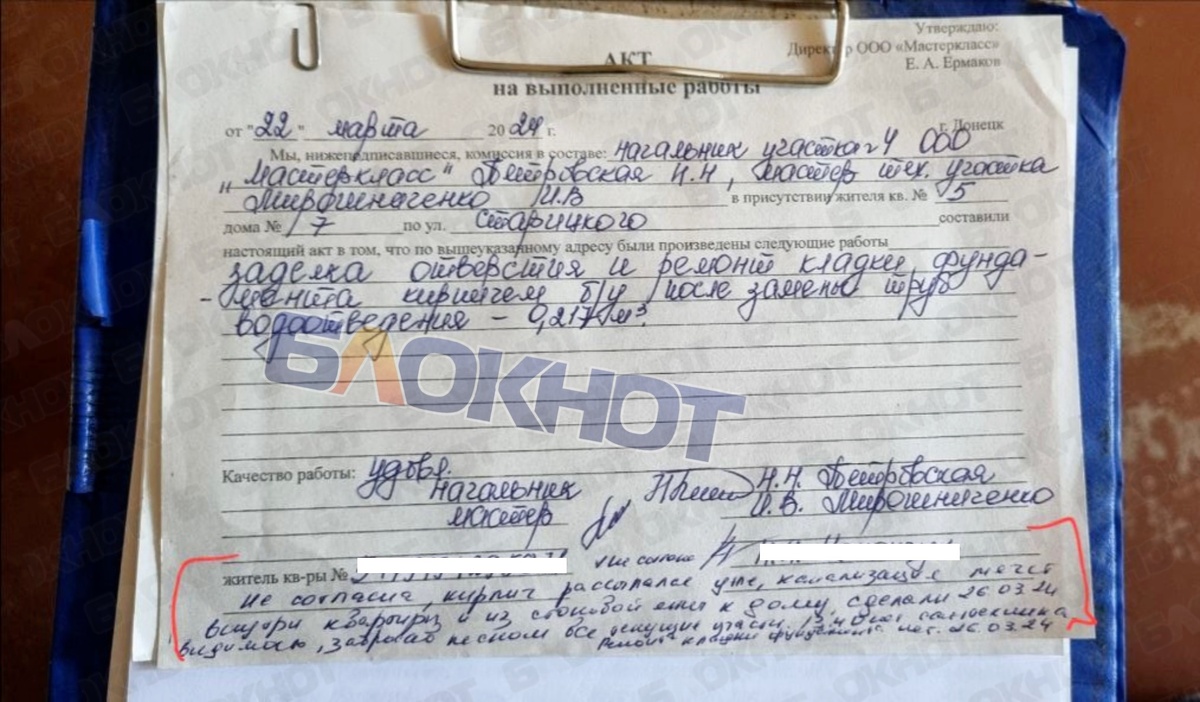 Утверждаю:
Директор ООО «Мастеркласс»
Е. А. Ермаков
АКТ
на выполненные работы
от "22" марта 2024 г. г. Донецк
Мы, нижеподписавшиеся, комиссия в составе: начальник участка №4 ООО
"Мастеркласс" Петровская Н.Н, мастер тех. участка
Мирошниченко И.В в присутствии жителя кв. № 5
дома № 7 по ул. Старицкого составили
настоящий акт в том, что по вышеуказанному адресу были произведены следующие работы
заделка отверстия и ремонт кладки фунда-
-мента кирпичем б/у после замены труб
водоотведения – 0,217 м³.
БЛОКНОТ
Качество работы: удовл.
начальник Н.Н. Петровская
мастер И.В. Мирошниченко
житель кв-ры № не согласна
Не согласна, кирпич рассыпался уже, канализация течёт
внутри квартиры и из к дому, сделали 26.03.24
видимость, песком все участки.
Ремонт кладки фундамента нет. 26.03.24